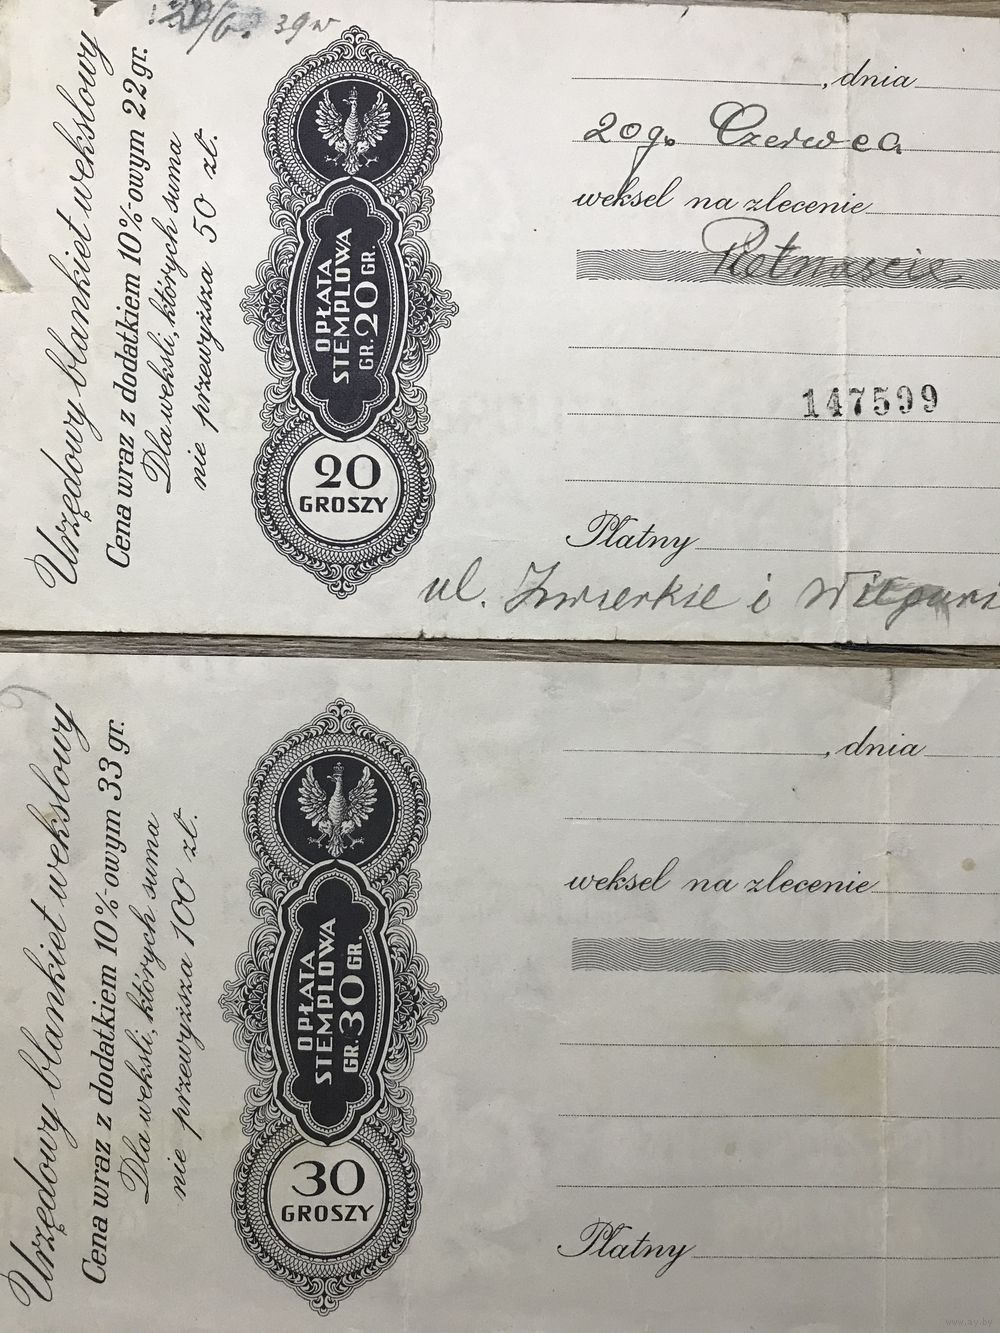 20/6. 39 w
Urzędowy blankiet wekslowy
Cena wraz z dodatkiem 10%-owym 22 gr.
Dla weksli, których suma
nie przewyższa 50 zł.
OPŁATA
STEMPLOWA
GR. 20 GR.
20
GROSZY
, dnia
20go Czerwca
weksel na zlecenie
Piętnaście
147599
Płatny
ul. Żwirki i
Urzędowy blankiet wekslowy
Cena wraz z dodatkiem 10%-owym 33 gr.
Dla weksli, których suma
nie przewyższa 100 zł.
OPŁATA
STEMPLOWA
GR. 30 GR.
30
GROSZY
, dnia
weksel na zlecenie
Płatny
www.ay.by